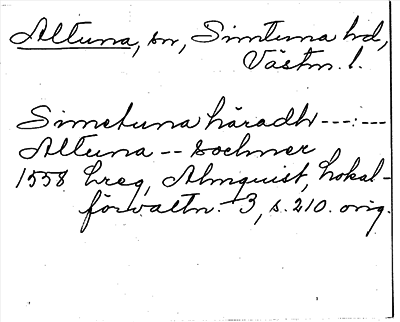 Altuna, sn, Simtuna hd,
Västm. l.
Simetuna häradh ---:---
Altuna -- sochner
1558 hreg, Almquist, Lokal-
förvaltn. 3, s. 210. orig.